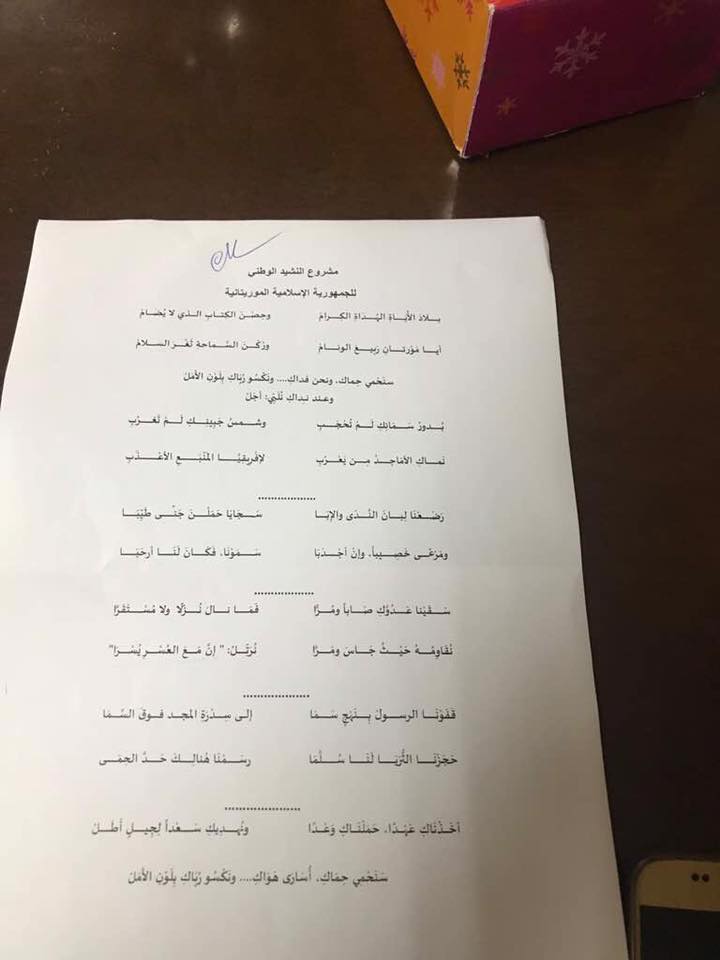 مشروع النشيد الوطني
للجمهورية الإسلامية الموريتانية
بــلادَ الأُبــاةِ الهُــدَاةِ الكِــرامْ وحِصْـنَ الكِتـابِ الـذي لا يُـضَـامْ
أيــا مَـوْرِتــانِ رَبِيــعَ الوِئـامْ ورُكْـنَ السَّـمـاحة ثَغْـرَ السـلامْ
سنَحْمِي حِماكِ، ونحن فِداكِ.... ونَكْسُو رُبَاكِ بِلَوْنِ الأَمَلْ
وعـنـد نـداكِ نُلَبِّي: أجَلْ
بُــدورُ سَـمَـائِكِ لَــمْ تُحْجَـبِ وشــمـسُ جَبِينِــكِ لَـــمْ تَغْــرُبِ
نَمـاكِ الأمَاجِـدُ مِـن يَعْـرُبِ لإفريقيَّــا المَنْبَــعِ الأَعْــذَبِ
.................
رَضَـعْنَا لِبـانَ النَّـدَى والإبَـا سَـجَايَا حَمَلْـنَ جَنًـى طَيِّبَــا
ومَرْعًـى خَصِـيباً، وإنْ أجْـدَبَا سَـمَوْنَـا، فَكَـانَ لَنَـا أرحَبَــا
.................
سَـقَيْنا عَـدُوَّكِ صَـاباً ومُـرَّا فَمَـا نـالَ نُــزْلًا ولا مُسْـتَقَرَّا
نُقَاوِمُــهُ حَيْــثُ جَـاسَ ومَـرَّا نُرَتِّـلُ: " إنَّ مَـعَ العُسْـرِ يُسْـرَا"
...................
قَفَوْنَـا الرسولَ بِـنَهْجٍ سَـمَـا إلى سِـدْرَةِ المجـد فـوقَ السَّمَا
حَجَزْنَـا الثُّرَيَّـا لَنَـا سُــلَّمَا رسَـمْنَا هُنالِـكَ حَـدَّ الحِمَـى
......................
أخَـذْنَاكِ عَهْـدًا، حَمَلْنَـاكِ وَعْـدَا ونُهْـدِيكِ سَـعْداً لِجِيـلٍ أَطَــلّْ
سَنَحْمِي حِمَاكِ، أُسَارَى هَوَاكِ.... ونَكْسُو رُبَاكِ بِلَوْنِ الأمَلْ